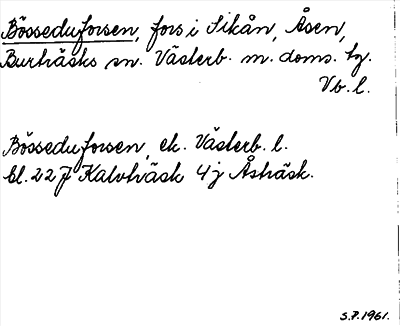 Bösseduforsen, fors i Sikån, Åsen,
Burträsks sn. Västerb. m. doms. tg.
Vb. l.
Bösseduforsen, ek. Västerb. l.
bl. 227 Kalvträsk 4j Åsträsk.
5.7.1961.